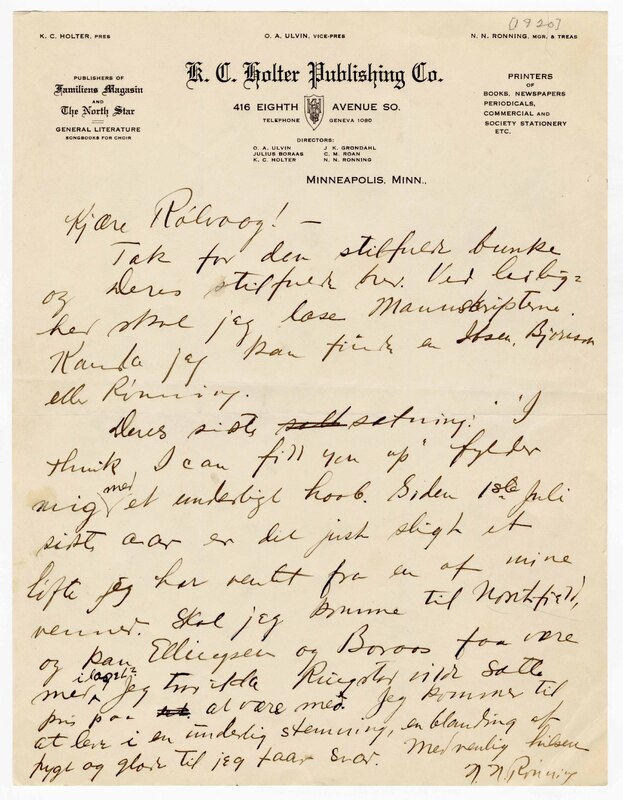 [1920]
K. C. HOLTER, PRES
O. A. ULVIN, VICE-PRES
N. N. RONNING, MGR. & TREAS
K. C. Holter Publishing Co.
PUBLISHERS OF
Familiens Magasin
AND
The North Star
GENERAL LITERATURE
SONGBOOKS FOR CHOIR
416 EIGHTH AVENUE SO.
TELEPHONE GENEVA 1080
DIRECTORS:
O. A. ULVIN J. K. GRONDAHL
JULIUS BORAAS C. M. ROAN
K. C. HOLTER N. N. RONNING
PRINTERS
OF
BOOKS, NEWSPAPERS
PERIODICALS,
COMMERCIAL AND
SOCIETY STATIONERY
ETC.
MINNEAPOLIS, MINN.,
Kjære Rölvaag! —
Tak for den stilfulde bunke
og Deres stilfulde brev. Ved leilig=
hed skal jeg læse Manuskripterne.
Kanda jeg kan finde en Ibsen, Bjørnson
eller Rønning.
Deres siste setning: "I
think I can fill you up" fylder
mig med et underligt haab. Siden 1ste Juli
siste aar er det just sligt et
löfte jeg har ventet fra en af mine
venner. Skal jeg komme til Northfield,
og kan Ellingsen og Boraas faa være
med, jeg Ringstad vilde sætte
pris paa at være med. Jeg kommer til
at leve i en underlig stemning, en blanding af
frygt og glæde til jeg faar svar. Med venlig hilsen
N. N. Rönning